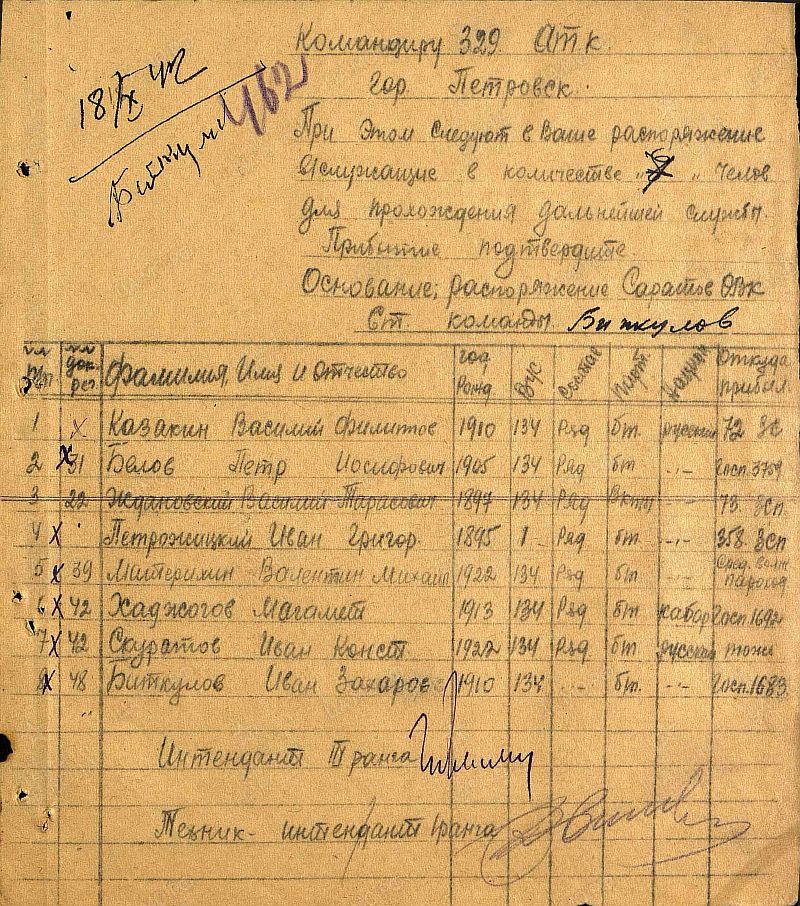 Командиру 329 Атк.
гор. Петровск.
18/IX 42
462
При этом следуют в Ваше распоряжение
в/служащие в количестве " " челов
для прохождения дальнейшей службы.
Прибытие подтвердите.
Основание; распоряжение Саратов ОВК
Ст. команды Биткулов
Фамилия, Имя и Отчество год Рожд. ВУС Состав Парт. Национ Откуда прибыл.
1 х Казакин Василий Филиппов 1910 134 Ряд бп. русский 72 ЗС
2 х31 Белов Петр Иосифович 1905 134 Ряд бп -"- Госп. 3759
3 22 Ждановский Василий Тарасович 1897 134 Ряд -"- 73. Зсп.
4 х Петрожицкий Иван Григор. 1895 1 Ряд бп. -"- 358. Зсп
5 х 39 Митерихин Валентин Михаил 1922 134 Ряд бп. -"- пароход
6 х 42 Хаджогов Магамет 1913 134 Ряд бп кабар Госп 1692
7 х 42 Скуратов Иван Конст. 1922 134 Ряд бп. русский тоже
8 х 48 Биткулов Иван Захаров 1910 134 -"- бп. -"- Госп. 1683
Интендант III ранга
Техник-интендант I ранга